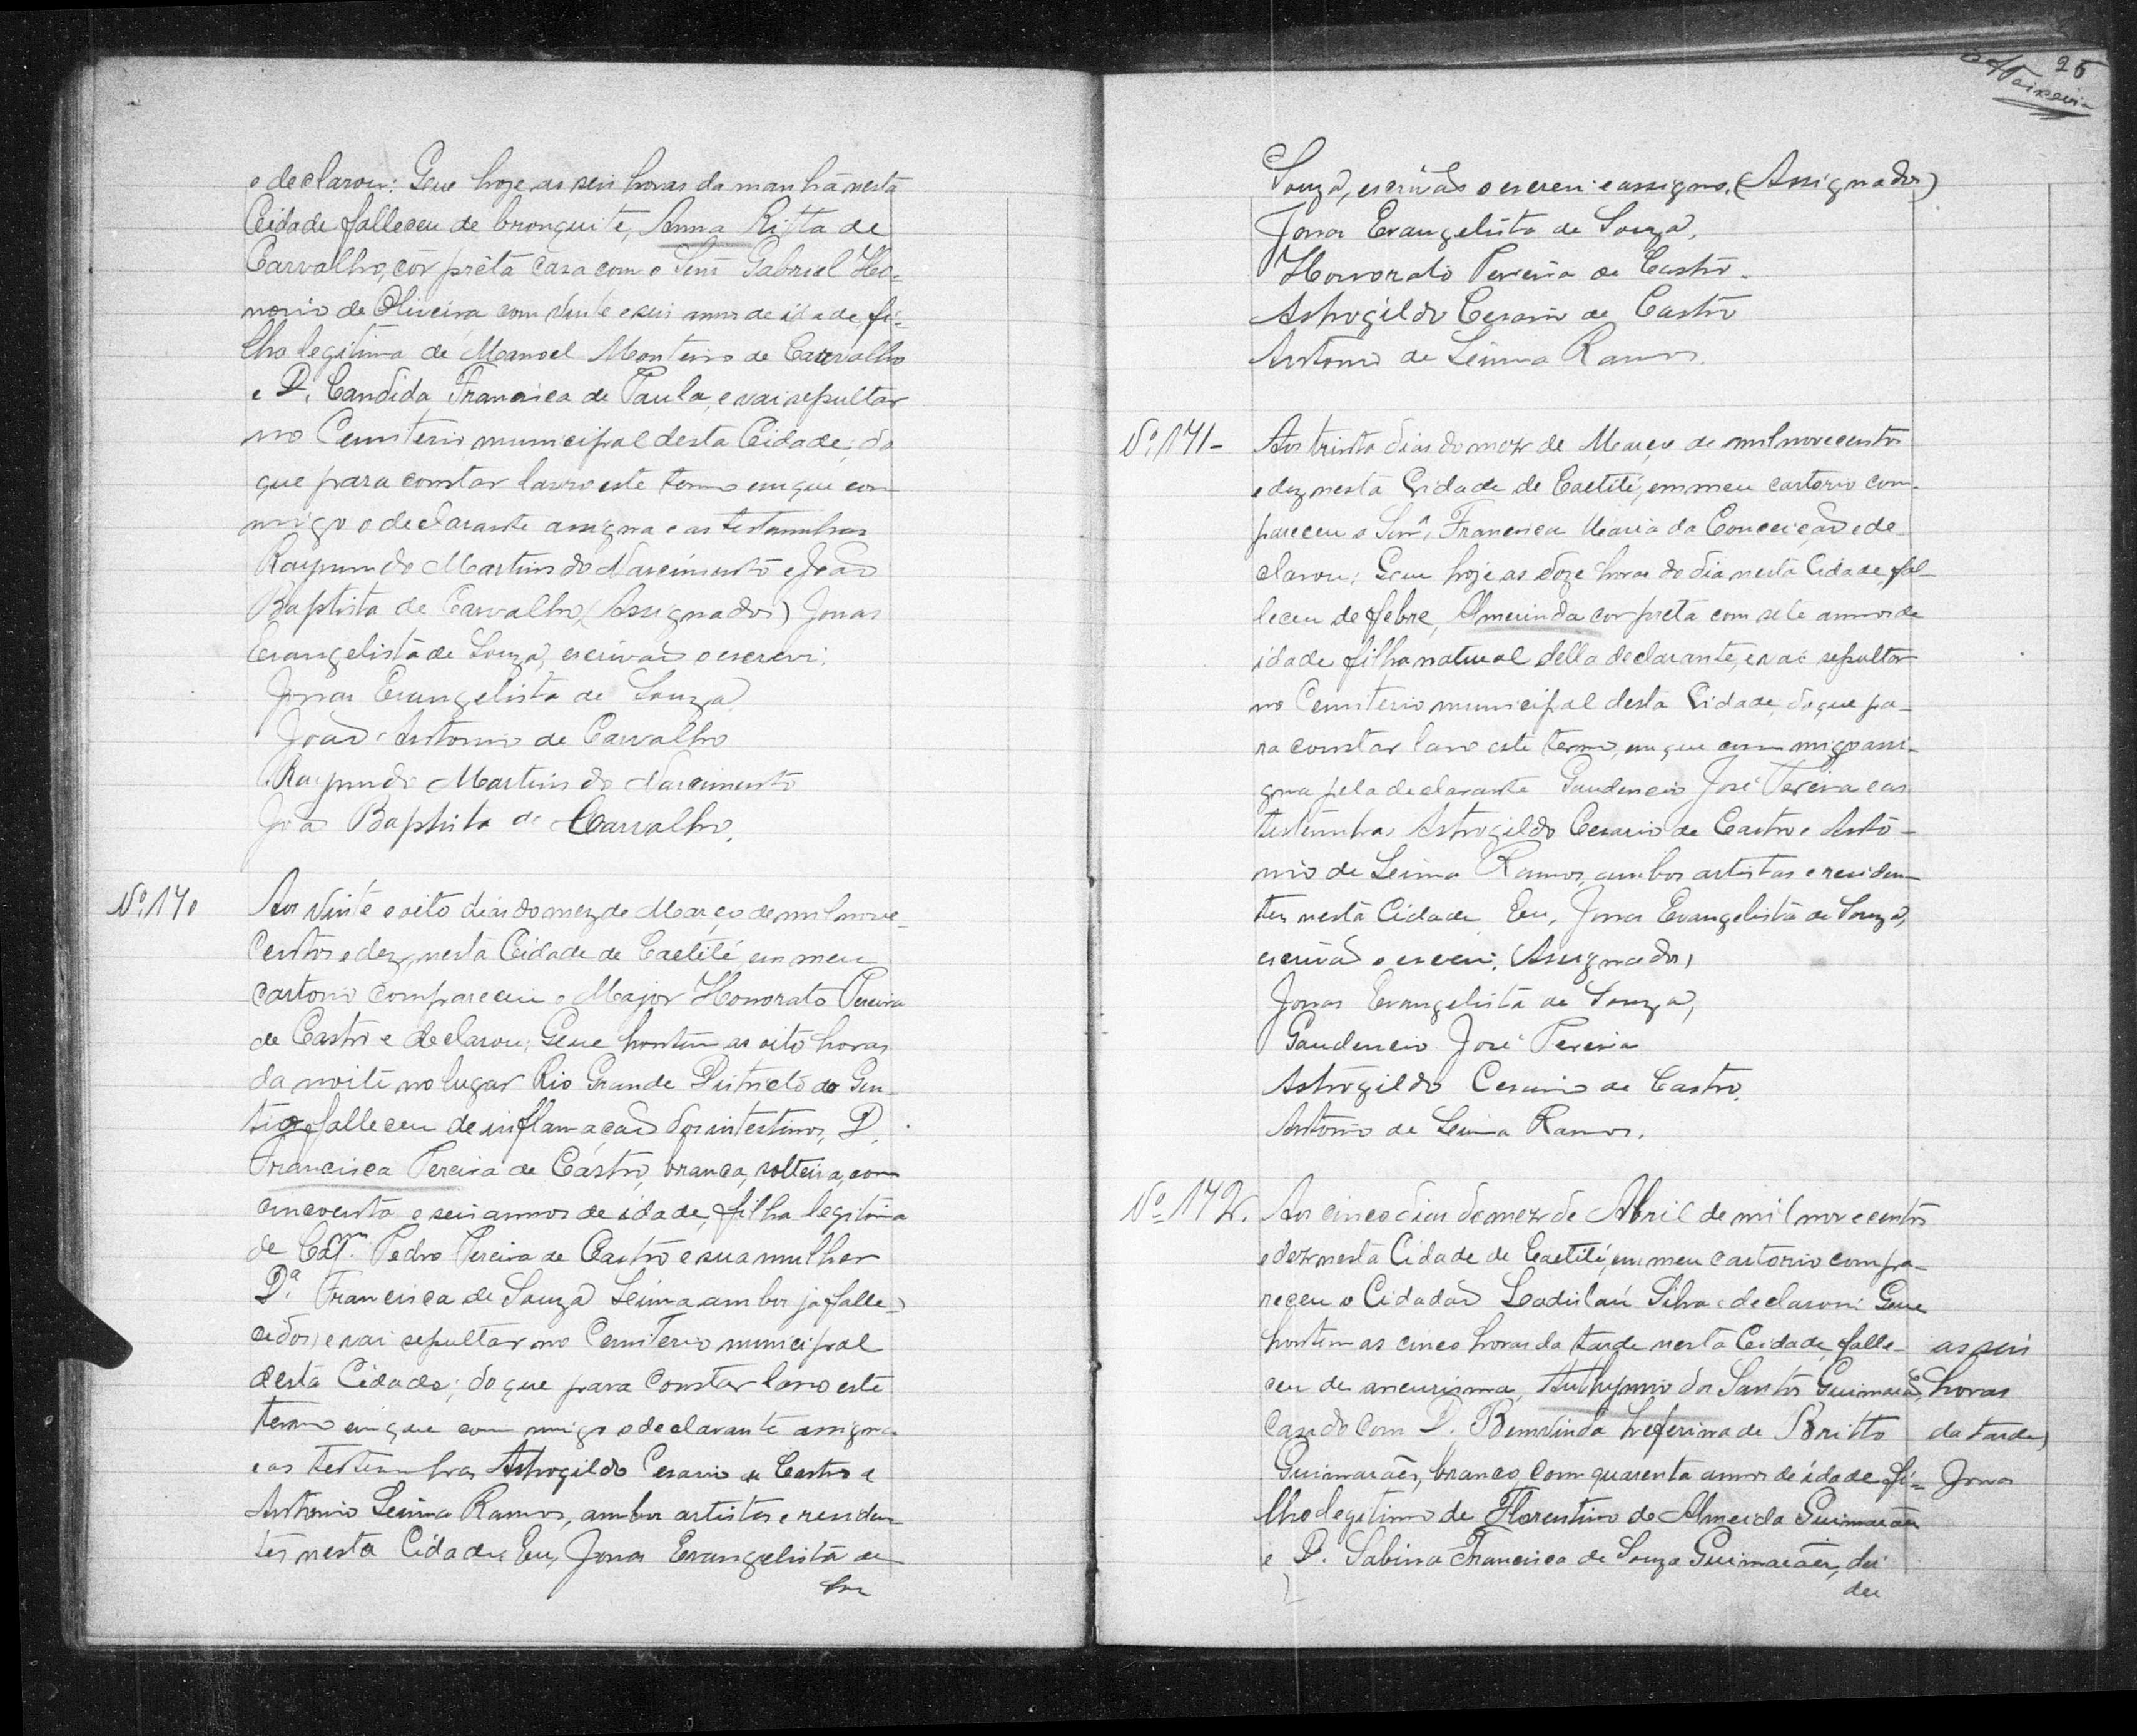 e declarou: Que hoje as seis horas da manhã nesta
Cidade falleceu de bronquite, Anna Ritta de
Carvalho, côr prêta casa com o Senr Gabriel Ho-
norio de Oliveira com vinte e seis annos de idade fi-
lha legitima de Manoel Monteiro de Carvalho
e D. Candida Francisca de Paula, e vai sepultar
no Cemiterio municipal desta Cidade, do
que para constar lavro este termo em que com
migo o declarante assigna e as testemunhas
Raymundo Martins do Nascimento e João
Baptista de Carvalho (Assignados) Jonas
Evangelista de Souza, escrivão o escrevi.
Jonas Evangelista de Souza
João Antonio de Carvalho
Raymundo Martins do Nascimento
João Baptista de Carvalho.
Nº. 170
Aos vinte e oito dias do mez de Março de mil nove-
centos e dez, nesta Cidade de Caetité em meu
cartorio compareceu o Major Honorato Pereira
de Castro e declarou: Que hontem as oito horas
da noite no lugar Rio Grande Districto do Gen-
tio falleceu de inflamação dos intestinos, D.
Francisca Pereira de Castro, branca, solteira, com
cincoenta e seis annos de idade, filha legitima
de Pedro Pereira de Castro e sua mulher
D.ª Francisca de Souza Leima ambos ja falle-
cidos, e vai sepultar no Cemiterio municipal
desta Cidade; do que para constar lavro este
termo em que com migo o declarante assigna
e as testemunhas Astrogildo Cesario de Castro e
Antonio Leima Ramos, ambos artistas e residen-
tes nesta Cidade. Eu, Jonas Evangelista de
Sou
25
Souza, escrivão o escrevi e assigno. (Assignados)
Jonas Evangelista de Souza,
Honorato Pereira de Castro.
Astrogildo Cesario de Castro
Antonio de Leima Ramos.
Nº. 171-
Aos trinta dias do mez de Março de mil novecentos
e dez, nesta Cidade de Caetité, em meu cartorio com-
pareceu o Senrª. Francisca Maria da Conceição e de-
clarou: Que hoje as doze horas do dia nesta Cidade fal-
leceu de febre, Almerinda cor preta com sete annos de
idade filha natural della declarante, e vai sepultar
no Cemiterio municipal desta Cidade, do que pa-
ra constar lavro este termo, em que com migo assi-
gna pela declarante Gaudencio José Pereira e as
testemunhas Astrogildo Cesario de Castro e Anto-
nio de Leima Ramos, ambos artistas e residen-
tes nesta Cidade. Eu, Jonas Evangelista de Souza,
escrivão o escrevi. (Assignados)
Jonas Evangelista de Souza,
Gaudencio José Pereira
Astrogildo Cesario de Castro.
Antonio de Leima Ramos.
Nº 172.
Aos cinco dias do mez de Abril de mil novecentos
e dez nesta Cidade de Caetité, em meu cartorio compa-
receu o Cidadão Ladislau Silva e declarou: Que
hontem as cinco horas da tarde nesta Cidade, falle-
ceu de aneurisma, Anthymio dos Santos Guimarães,
casado com D. Bemvinda Zeferina de Britto
Guimarães, branco, com quarenta annos de idade fi-
lho legitimo de Florentino de Almeida Guimarães
e D. Sabina Francisca de Souza Guimarães, dei
dei
as seis
horas
da tarde)
Jonas